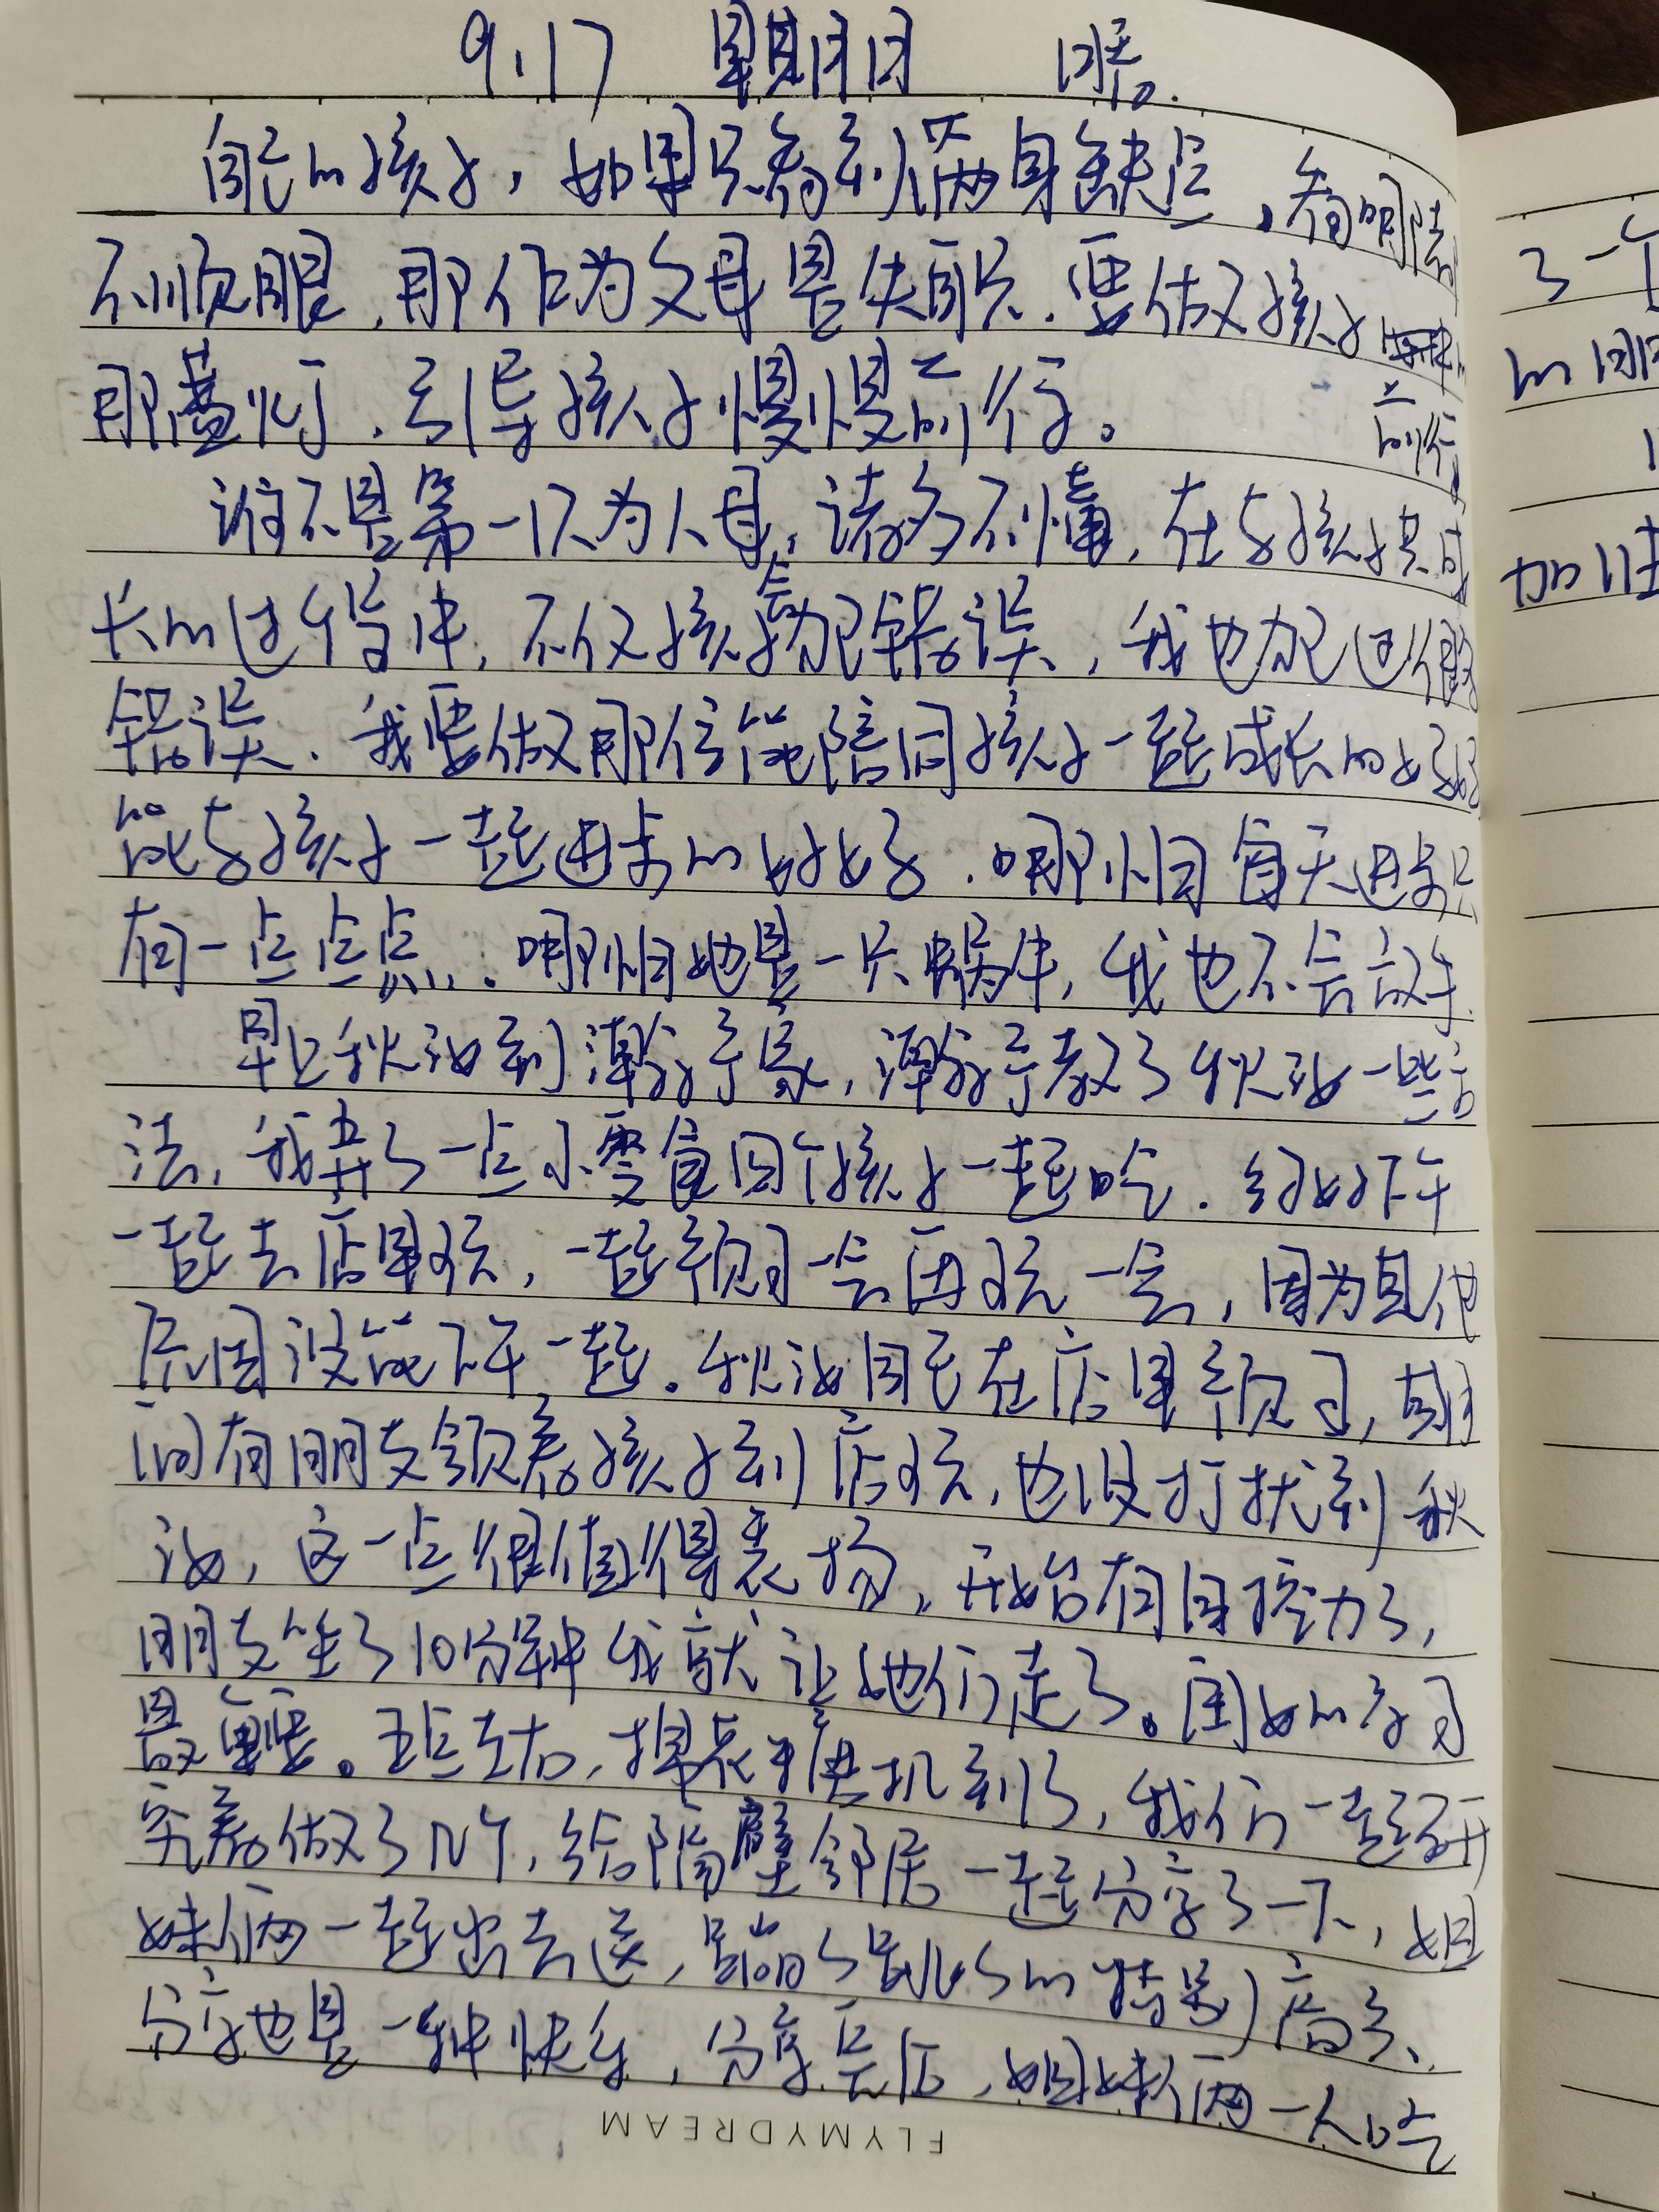 9.17 星期日 晴.
自己的孩子,如果只看到满身缺点,看哪都
不顺眼,那作为父母是失职.要做孩子
那盏灯,引导孩子慢慢前行。
前行
谁不是第一次为人母,诸多不懂,在与孩子共同成
长的过程中,不仅孩子会犯错误,我也犯过很多
错误.我要做那位能陪同孩子一起成长的妈妈
能与孩子一起进步的好妈妈.哪怕每天进步只
有一点点点...哪怕她是一只蜗牛,我也不会放手.
早上秋汝到潇予家,潇予教了秋汝一些方
法,我弄了一点小零食四个孩子一起吃.约好下午
一起去店里玩,一起预习一会再玩一会,因为其他
原因没能下午一起.秋汝周宅在店里预习,期
间有朋友领着孩子到店玩,也没打扰到秋
汝,这一点很值得表扬,开始有自控力了,
朋友坐了10分钟我就让她们走了。闺女的学习
最重要。五点左右,蛋糕机到了,我们一起研
究着做了几个,给隔壁邻居一起分享了一下,姐
妹俩一起出去送,蹦了跳了的特别高兴、
分享也是一种快乐,分享完后,姐妹俩一人吃
FLYMYDREAM
了一个
的
加